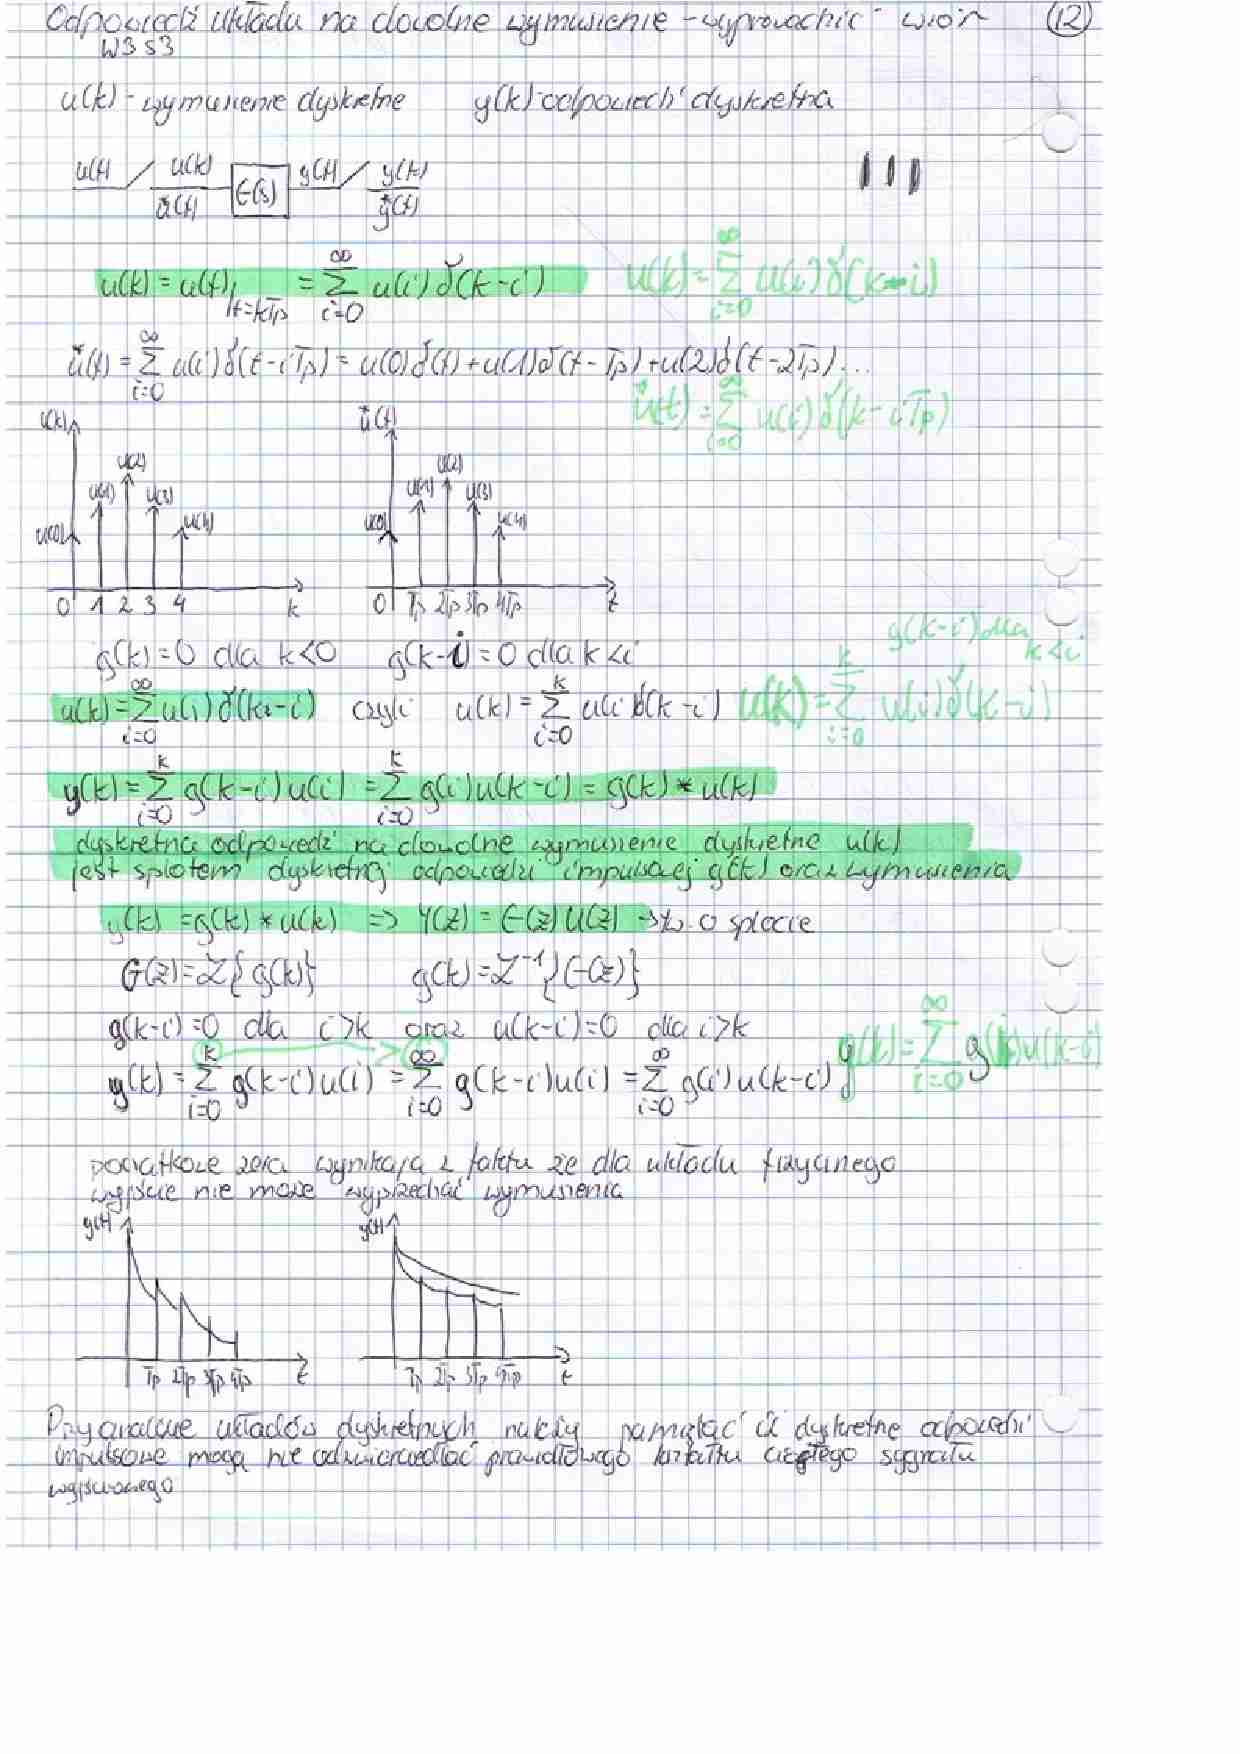 Odpowiedź układu na dowolne wymuszenie - wyprowadzić wzór (12)
W3 S3
u(k) - wymuszenie dyskretne y(k) - odpowiedź dyskretna
u(t) u(k) G(s) y(t) y(k)
ů(t) ẙ(t)
u(k) = u(t)|t=kTp = ∑_{i=0}^{∞} u(i) δ(k-i) u(k) = ∑_{i=0}^{∞} u(i) δ(k-i)
ů(t) = ∑_{i=0}^{∞} u(i) δ(t-iTp) = u(0)δ(t) + u(1)δ(t-Tp) + u(2)δ(t-2Tp)...
ů(t) = ∑_{i=0}^{∞} u(i) δ(k-iTp)
u(k) ů(t)
u(0) u(1) u(2) u(3) u(4) u(0) u(1) u(2) u(3) u(4)
0 1 2 3 4 k 0 Tp 2Tp 3Tp 4Tp t
g(k) = 0 dla k<0 g(k-i) = 0 dla k<i g(k-i) dla k<i
u(k) = ∑_{i=0}^{∞} u(i) δ(k-i) czyli u(k) = ∑_{i=0}^{k} u(i) δ(k-i) u(k) = ∑_{i=0}^{k} u(i) δ(k-i)
y(k) = ∑_{i=0}^{k} g(k-i) u(i) = ∑_{i=0}^{k} g(i) u(k-i) = g(k) * u(k)
dyskretna odpowiedź na dowolne wymuszenie dyskretne u(k)
jest splotem dyskretnej odpowiedzi impulsowej g(k) oraz wymuszenia
y(k) = g(k) * u(k) => Y(z) = G(z) U(z) → tw. o splocie
G(z) = Z{g(k)} g(k) = Z⁻¹{G(z)}
g(k-i) = 0 dla i>k oraz u(k-i) = 0 dla i>k
y(k) = ∑_{i=0}^{k} g(k-i) u(i) = ∑_{i=0}^{∞} g(k-i) u(i) = ∑_{i=0}^{∞} g(i) u(k-i) y(k) = ∑_{i=0}^{∞} g(i) u(k-i)
dodatkowe zera wynikają z faktu że dla układu fizycznego
wyjście nie może wyprzedzać wymuszenia
y(t) y(t)
Tp 2Tp 3Tp 4Tp t Tp 2Tp 3Tp 4Tp t
Przy analizie układów dyskretnych należy pamiętać iż dyskretne odpowiedzi
impulsowe mogą nie odzwierciedlać prawidłowego kształtu ciągłego sygnału
wyjściowego